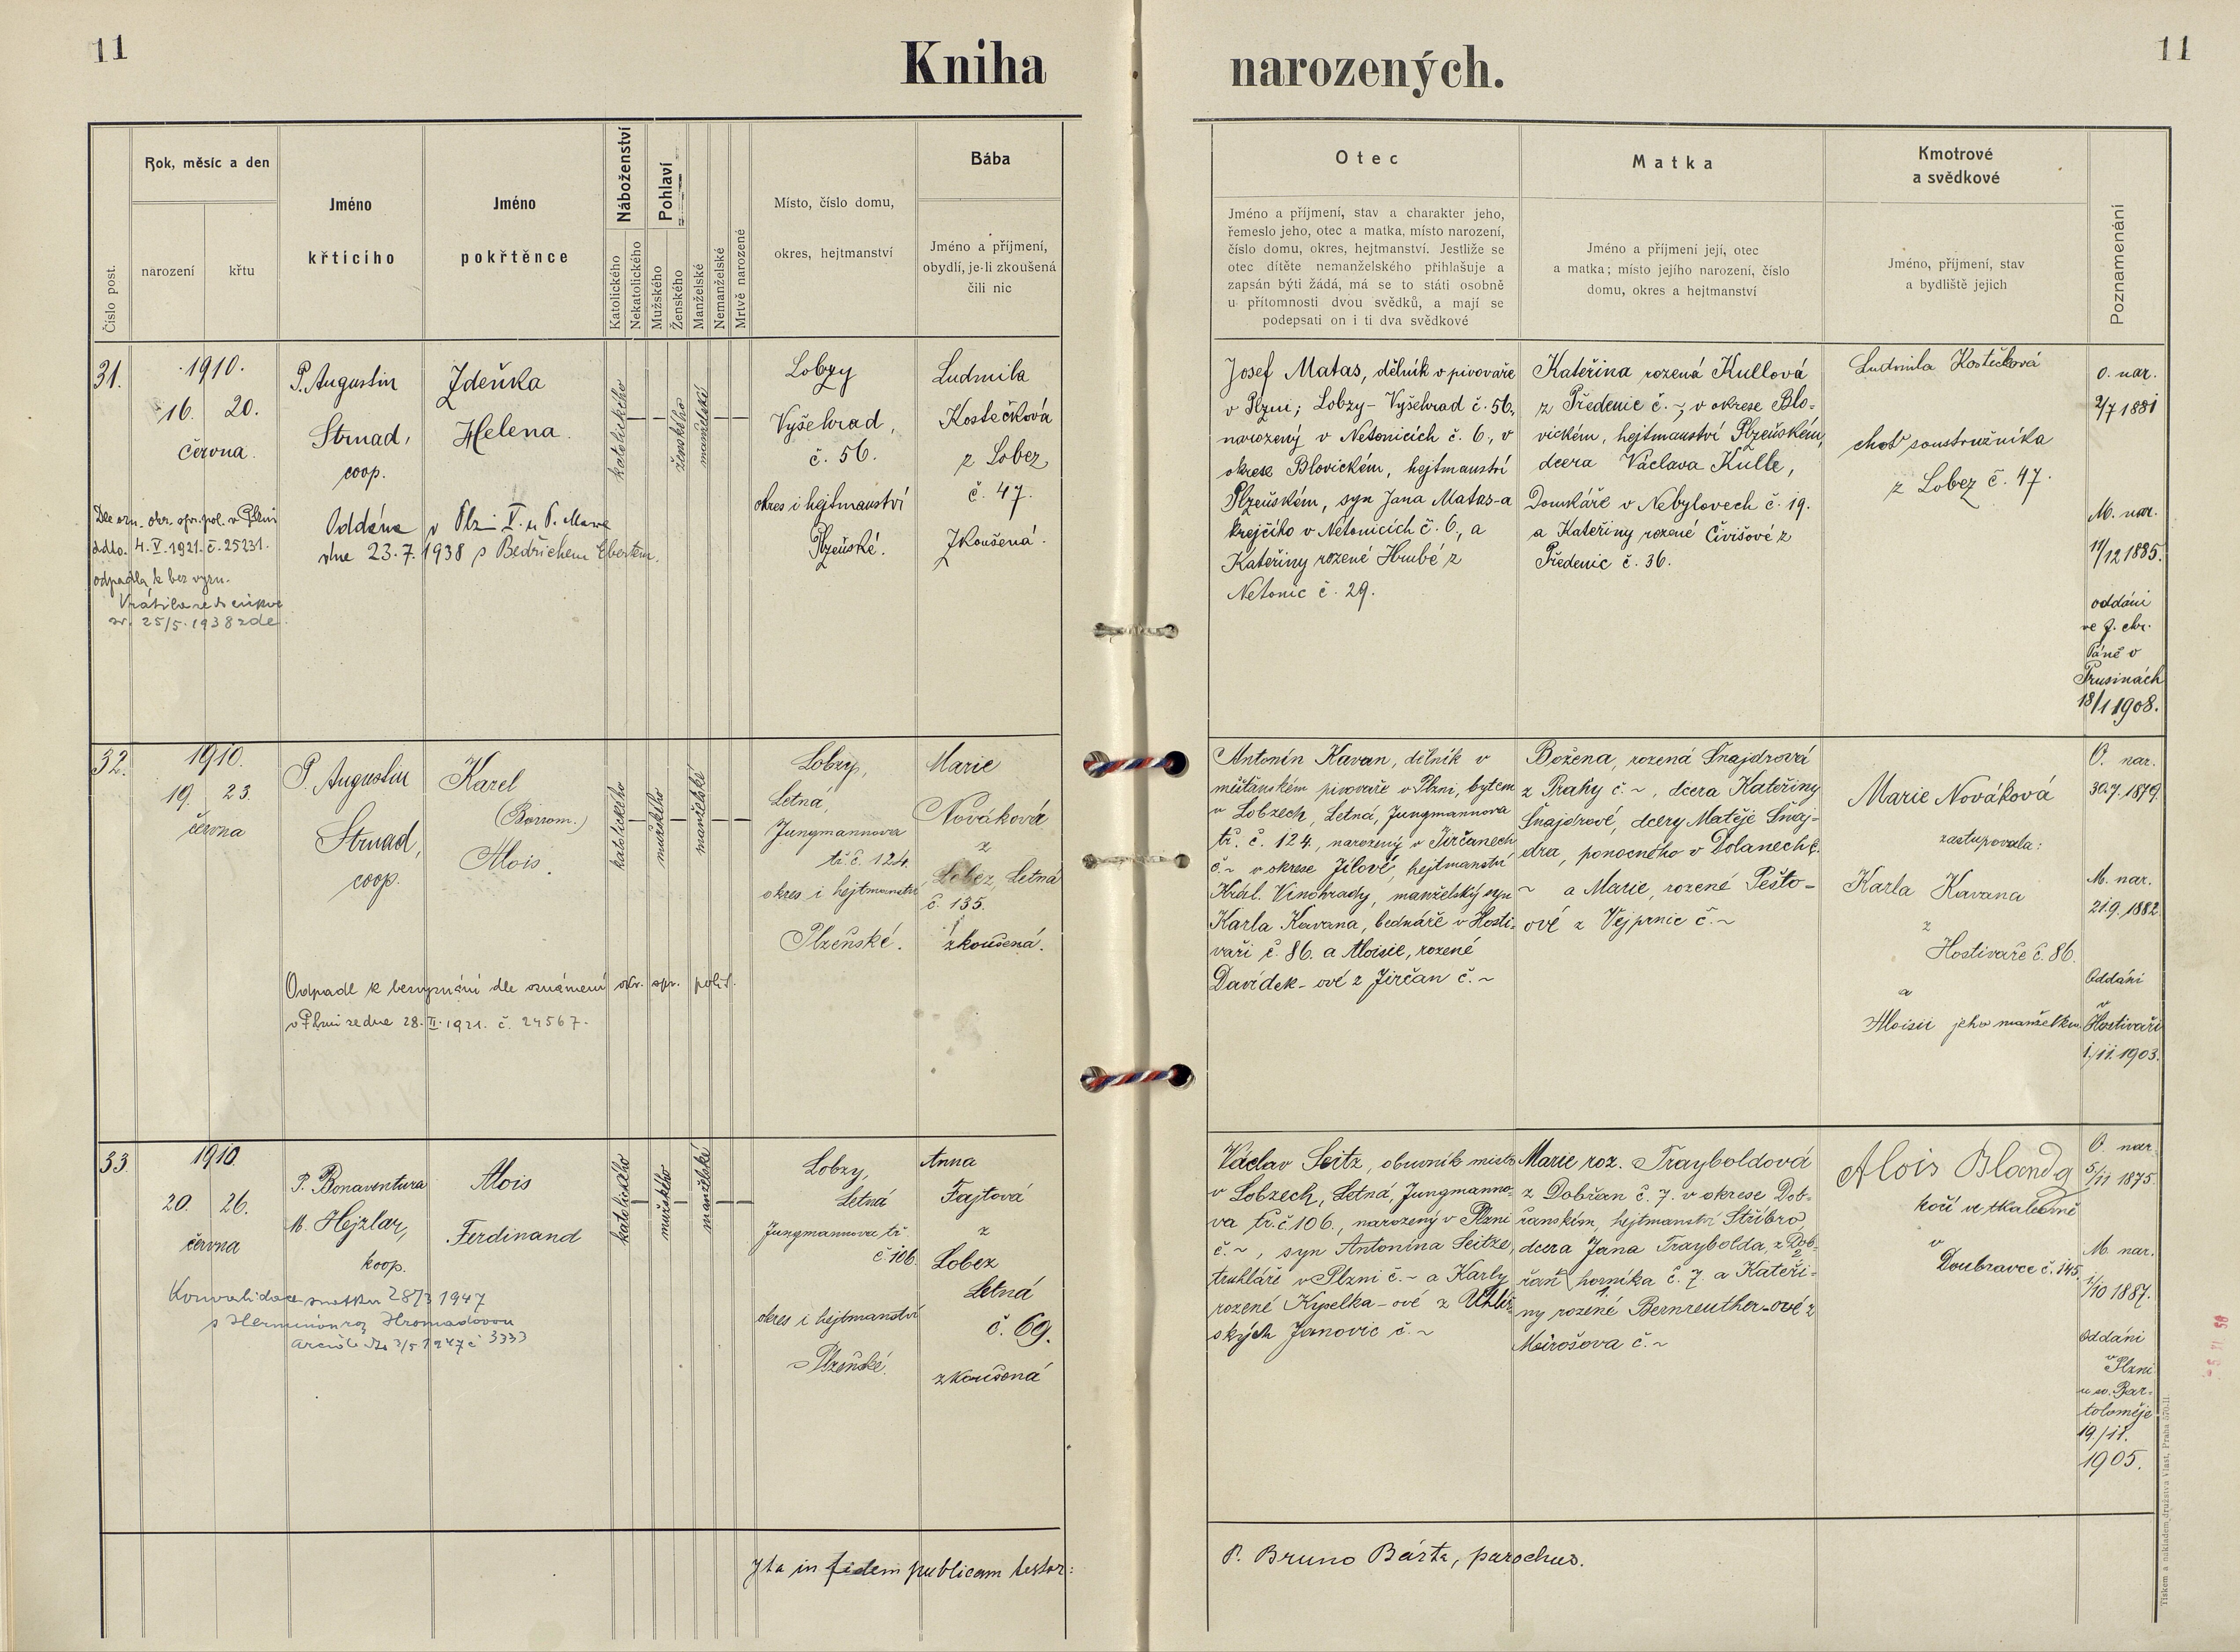 11
Kniha
narozených.
11
Číslo post.
Rok, měsíc a den
narození
křtu
Jméno
křticího
Jméno
pokřtěnce
Náboženství
Katolického
Nekatolického
Pohlaví
Mužského
Ženského
Manželské
Nemanželské
Mrtvě narozené
Místo, číslo domu,
okres, hejtmanství
Bába
Jméno a příjmení,
obydlí, je-li zkoušená
čili nic
Otec
Jméno a příjmení, stav a charakter jeho,
řemeslo jeho, otec a matka, místo narození,
číslo domu, okres, hejtmanství. Jestliže se
otec dítěte nemanželského přihlašuje a
zapsán býti žádá, má se to státi osobně
u přítomnosti dvou svědků, a mají se
podepsati on i ti dva svědkové
Matka
Jméno a příjmení její, otec
a matka; místo jejího narození, číslo
domu, okres a hejtmanství
Kmotrové
a svědkové
Jméno, příjmení, stav
a bydliště jejich
Poznamenání
31.
1910.
16. 20.
června.
P. Augustin
Strnad,
coop.
Zdeňka
Helena.
katolického
ženského
manželské
Lobzy
Vyšehrad,
č. 56.
okres i hejtmanství
Plzeňské.
Ludmila
Kostečková
z Lobez
č. 47.
Zkoušená.
Dle ozn. okr. spr. pol. v Plzni
ddto. 4. V. 1921. č. 25231.
odpadla k bez vyzn.
Vrátila se do církve
sv. 25/5. 1938 zde.
Oddána v Plzni V. u P. Marie
dne 23. 7. 1938 s Bedřichem Ebertem.
Josef Matas, dělník v pivovaře
v Plzni; Lobzy - Vyšehrad č. 56,
narozený v Netonicích č. 6, v
okrese Blovickém, hejtmanství
Plzeňském, syn Jana Matas-a
krejčího v Netonicích č. 6, a
Kateřiny rozené Hrubé z
Netonic č. 29.
Kateřina rozená Kullová
z Předenic č. ~, v okrese Blo-
vickém, hejtmanství Plzeňském,
dcera Václava Kulle,
Domkáře v Nebylovech č. 19.
a Kateřiny rozené Čivišové z
Předenic č. 36.
Ludmila Kostečková
choť soustružníka
z Lobez č. 47.
O. nar.
2/7 1881
M. nar.
11/12 1885.
oddáni
ve f. chr.
Páně v
Prusinách
18/1 1908.
32.
1910.
19. 23.
června
P. Augustin
Strnad,
coop.
Karel
(Borrom.)
Alois.
katolického
mužského
manželské
Lobzy,
Letná,
Jungmannova
tř. č. 124
okres i hejtmanství
Plzeňské.
Marie
Nováková
z
Lobez, Letná
č. 135.
zkoušená.
Odpadl k bezvyznání dle oznámení okr. spr. polit.
v Plzni ze dne 28. II. 1921. č. 24567.
Antonín Kavan, dělník v
měšťanském pivovaře v Plzni, bytem
v Lobzech, Letná, Jungmannova
tř. č. 124, narozený v Jirčanech
č. ~ v okrese Jílové, hejtmanství
Král. Vinohrady, manželský syn
Karla Kavana, bednáře v Hosti-
vaři č. 86. a Aloisie, rozené
Davídek-ové z Jirčan č. ~
Božena, rozená Šnajdrová
z Prahy č. ~, dcera Kateřiny
Šnajdrové, dcery Matěje Šnaj-
dra, ponocného v Dolanech č.
~ a Marie, rozené Pešto-
ové z Vejprnic č. ~
Marie Nováková
zastupovala:
Karla Kavana
z
Hostivaře č. 86.
a
Aloisii jeho manželku.
O. nar.
30.7. 1879.
M. nar.
21.9. 1882
Oddáni
v
Hostivaři
1./11. 1903.
33.
1910.
20. 26.
června
P. Bonaventura
M. Hejzlar,
koop.
Alois
Ferdinand
katolického
mužského
manželské
Lobzy,
Letná
Jungmannova tř.
č. 106.
okres i hejtmanství
Plzeňské.
Anna
Fajtová
z
Lobez
Letná
č. 69.
zkoušená
Konvalidace sňatku 28/3 1947
s Hermínou roz. Hromadovou
3333
Václav Seitz, obuvník mistr
v Lobzech, Letná, Jungmanno-
va tř. č 106., narozený v Plzni
č. ~, syn Antonína Seitze,
truhláře v Plzni č. ~ a Karly
rozené Kyselka-ové z Uhlíř-
ských Janovic č. ~
Marie roz. Trayboldová
z Dobřan č. 7. v okrese Dob-
řanském, hejtmanství Stříbro,
dcera Jana Traybolda, z Dob-
řan horníka č. 7. a Kateři-
ny rozené Bernreuther-ové z
Mirošova č. ~
Alois Blanda
kočí ve tkalcovně
v
Doubravce č. 145.
O. nar.
5/11 1875.
M. nar.
1/10 1887.
Oddáni
v Plzni
u sv. Bar-
toloměje
19./11.
1905.
Ita in fidem publicam testor:
P. Bruno Bárta, parochus.
Tiskem a nákladem družstva Vlast, Praha 570-II.